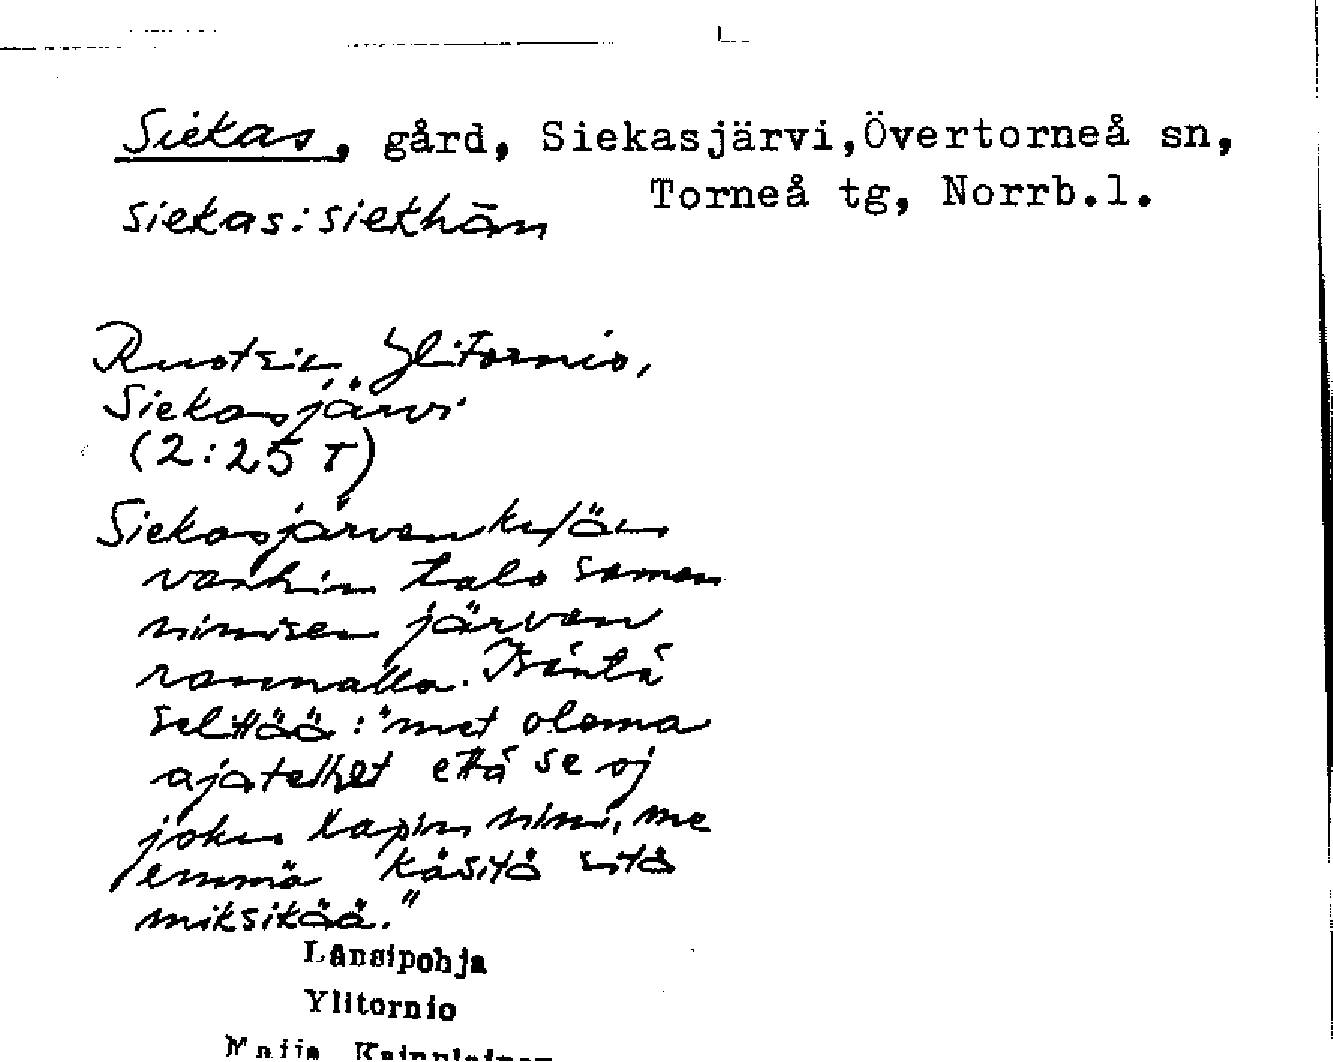 Siekas, gård, Siekasjärvi,Övertorneå sn,
Torneå tg, Norrb.l.
siekas: siekhān
Ruotsin Ylitornio,
Siekasjärvi
(2:25 T)
Siekasjärven kylän
vanhin talo saman
nimisen järven
rannalla. Isäntä
selittää: "met olema
ajatelhet että se oj
joku lapin nimi, me
emmä käsitä sitä
miksikää."
Länsipohja
Ylitornio